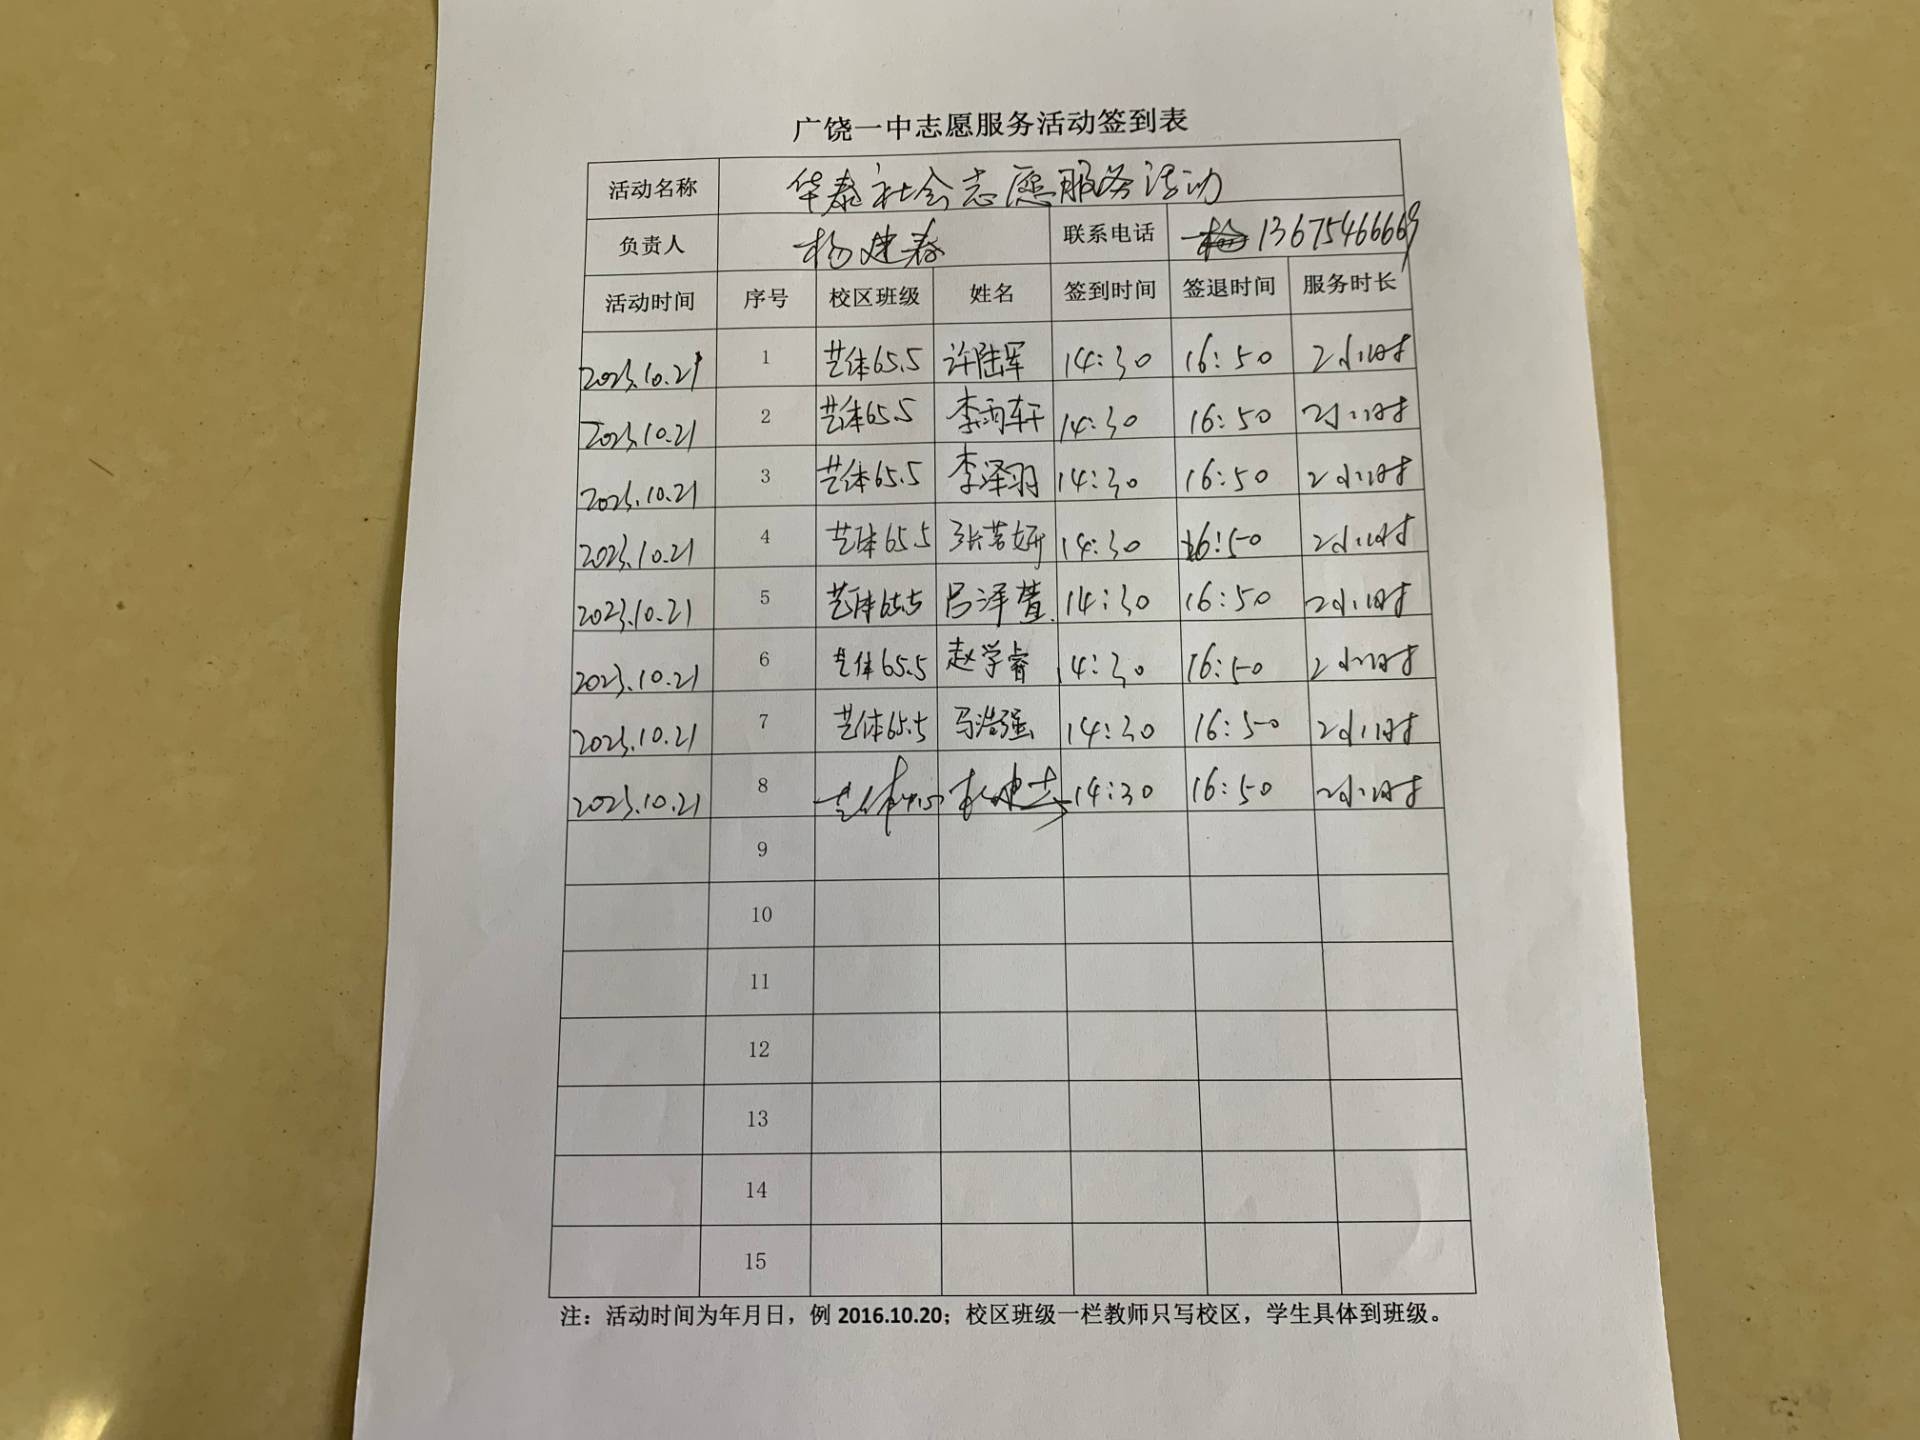 广饶一中志愿服务活动签到表
活动名称 华泰社会志愿服务活动
负责人 杨建春 联系电话 13675466669
活动时间 序号 校区班级 姓名 签到时间 签退时间 服务时长
2023.10.21 1 艺体65.5 许陆军 14:30 16:50 2小时
2023.10.21 2 艺体65.5 李雨轩 14:30 16:50 2小时
2023.10.21 3 艺体65.5 李泽羽 14:30 16:50 2小时
2023.10.21 4 艺体65.5 张若妍 14:30 16:50 2小时
2023.10.21 5 艺体65.5 吕泽萱 14:30 16:50 2小时
2023.10.21 6 艺体65.5 赵学睿 14:30 16:50 2小时
2023.10.21 7 艺体65.5 马浩强 14:30 16:50 2小时
2023.10.21 8 艺体 14:30 16:50 2小时
9
10
11
12
13
14
15
注：活动时间为年月日，例 2016.10.20；校区班级一栏教师只写校区，学生具体到班级。